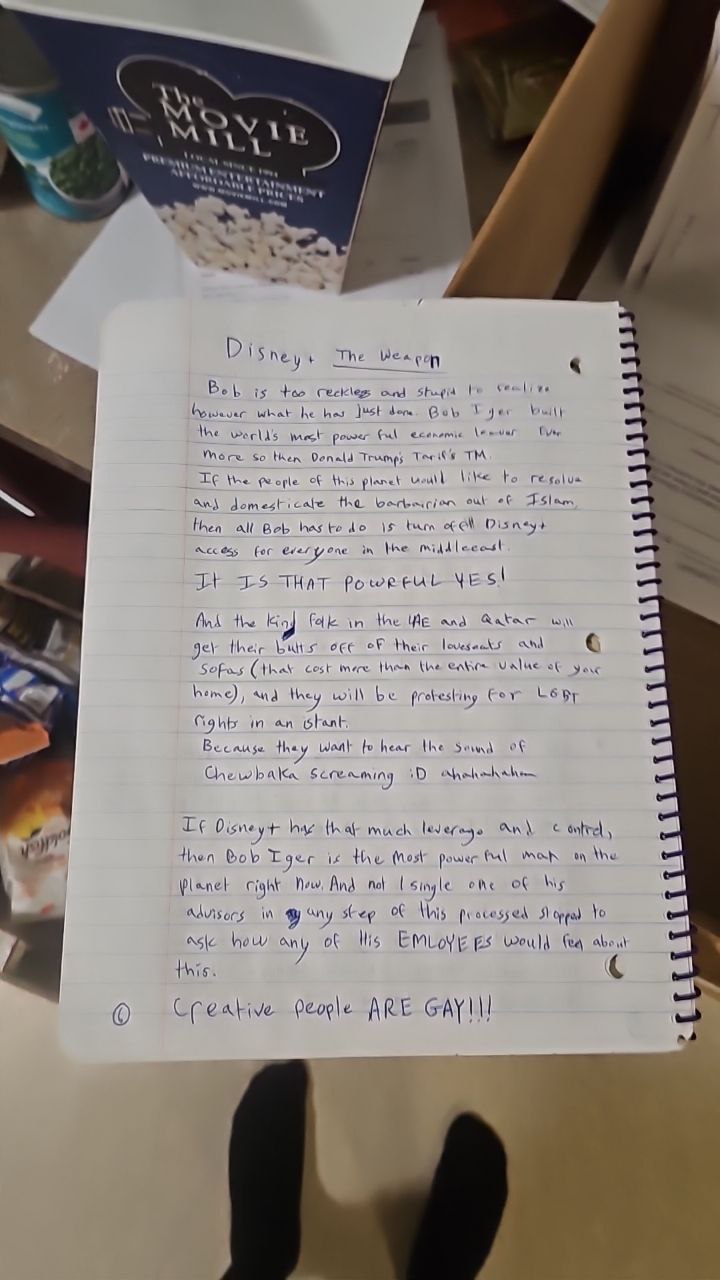 The
MOVIE
MILL
LOCAL SINCE
PREMIUM ENTERTAINMENT
AFFORDABLE PRICES
WWW.MOVIEMILL.COM
Disney+ The Weapon
Bob is too reckless and stupid to realize
however what he has just done. Bob Iger built
the world's most power ful economic Ever
more so then Donald Trump's Tarif's TM.
If the people of this planet would like to resolve
and domesticate the barbairian out of Islam,
then all Bob has to do is turn off all Disney+
access for everyone in the middleeast.
It IS THAT POWRFUL YES!
And the kind folk in the UAE and Qatar will
get their butts off of their loveseats and
sofas (that cost more than the entire value of your
home), and they will be protesting for LGBT
rights in an istant.
Because they want to hear the sound of
Chewbaka screaming :D ahahahaha
If Disney+ has that much leverage and control,
then Bob Iger is the most power ful man on the
planet right now. And not 1 single one of his
advisors in any step of this processed stopped to
ask how any of His EMLOYEES would feel about
this.
6 Creative people ARE GAY!!!